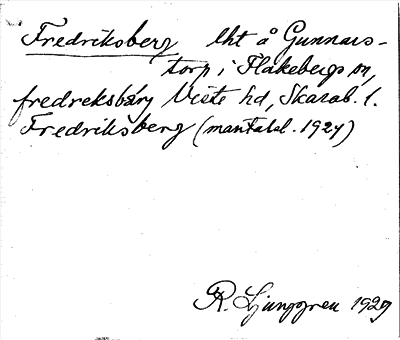 Fredriksberg lht å Gunnars-
torp i Flakebergs sn,
fredreksbärj Viste hd, Skarab. l.
Fredriksberg (mantalsl. 1924)
R. Ljunggren 1929